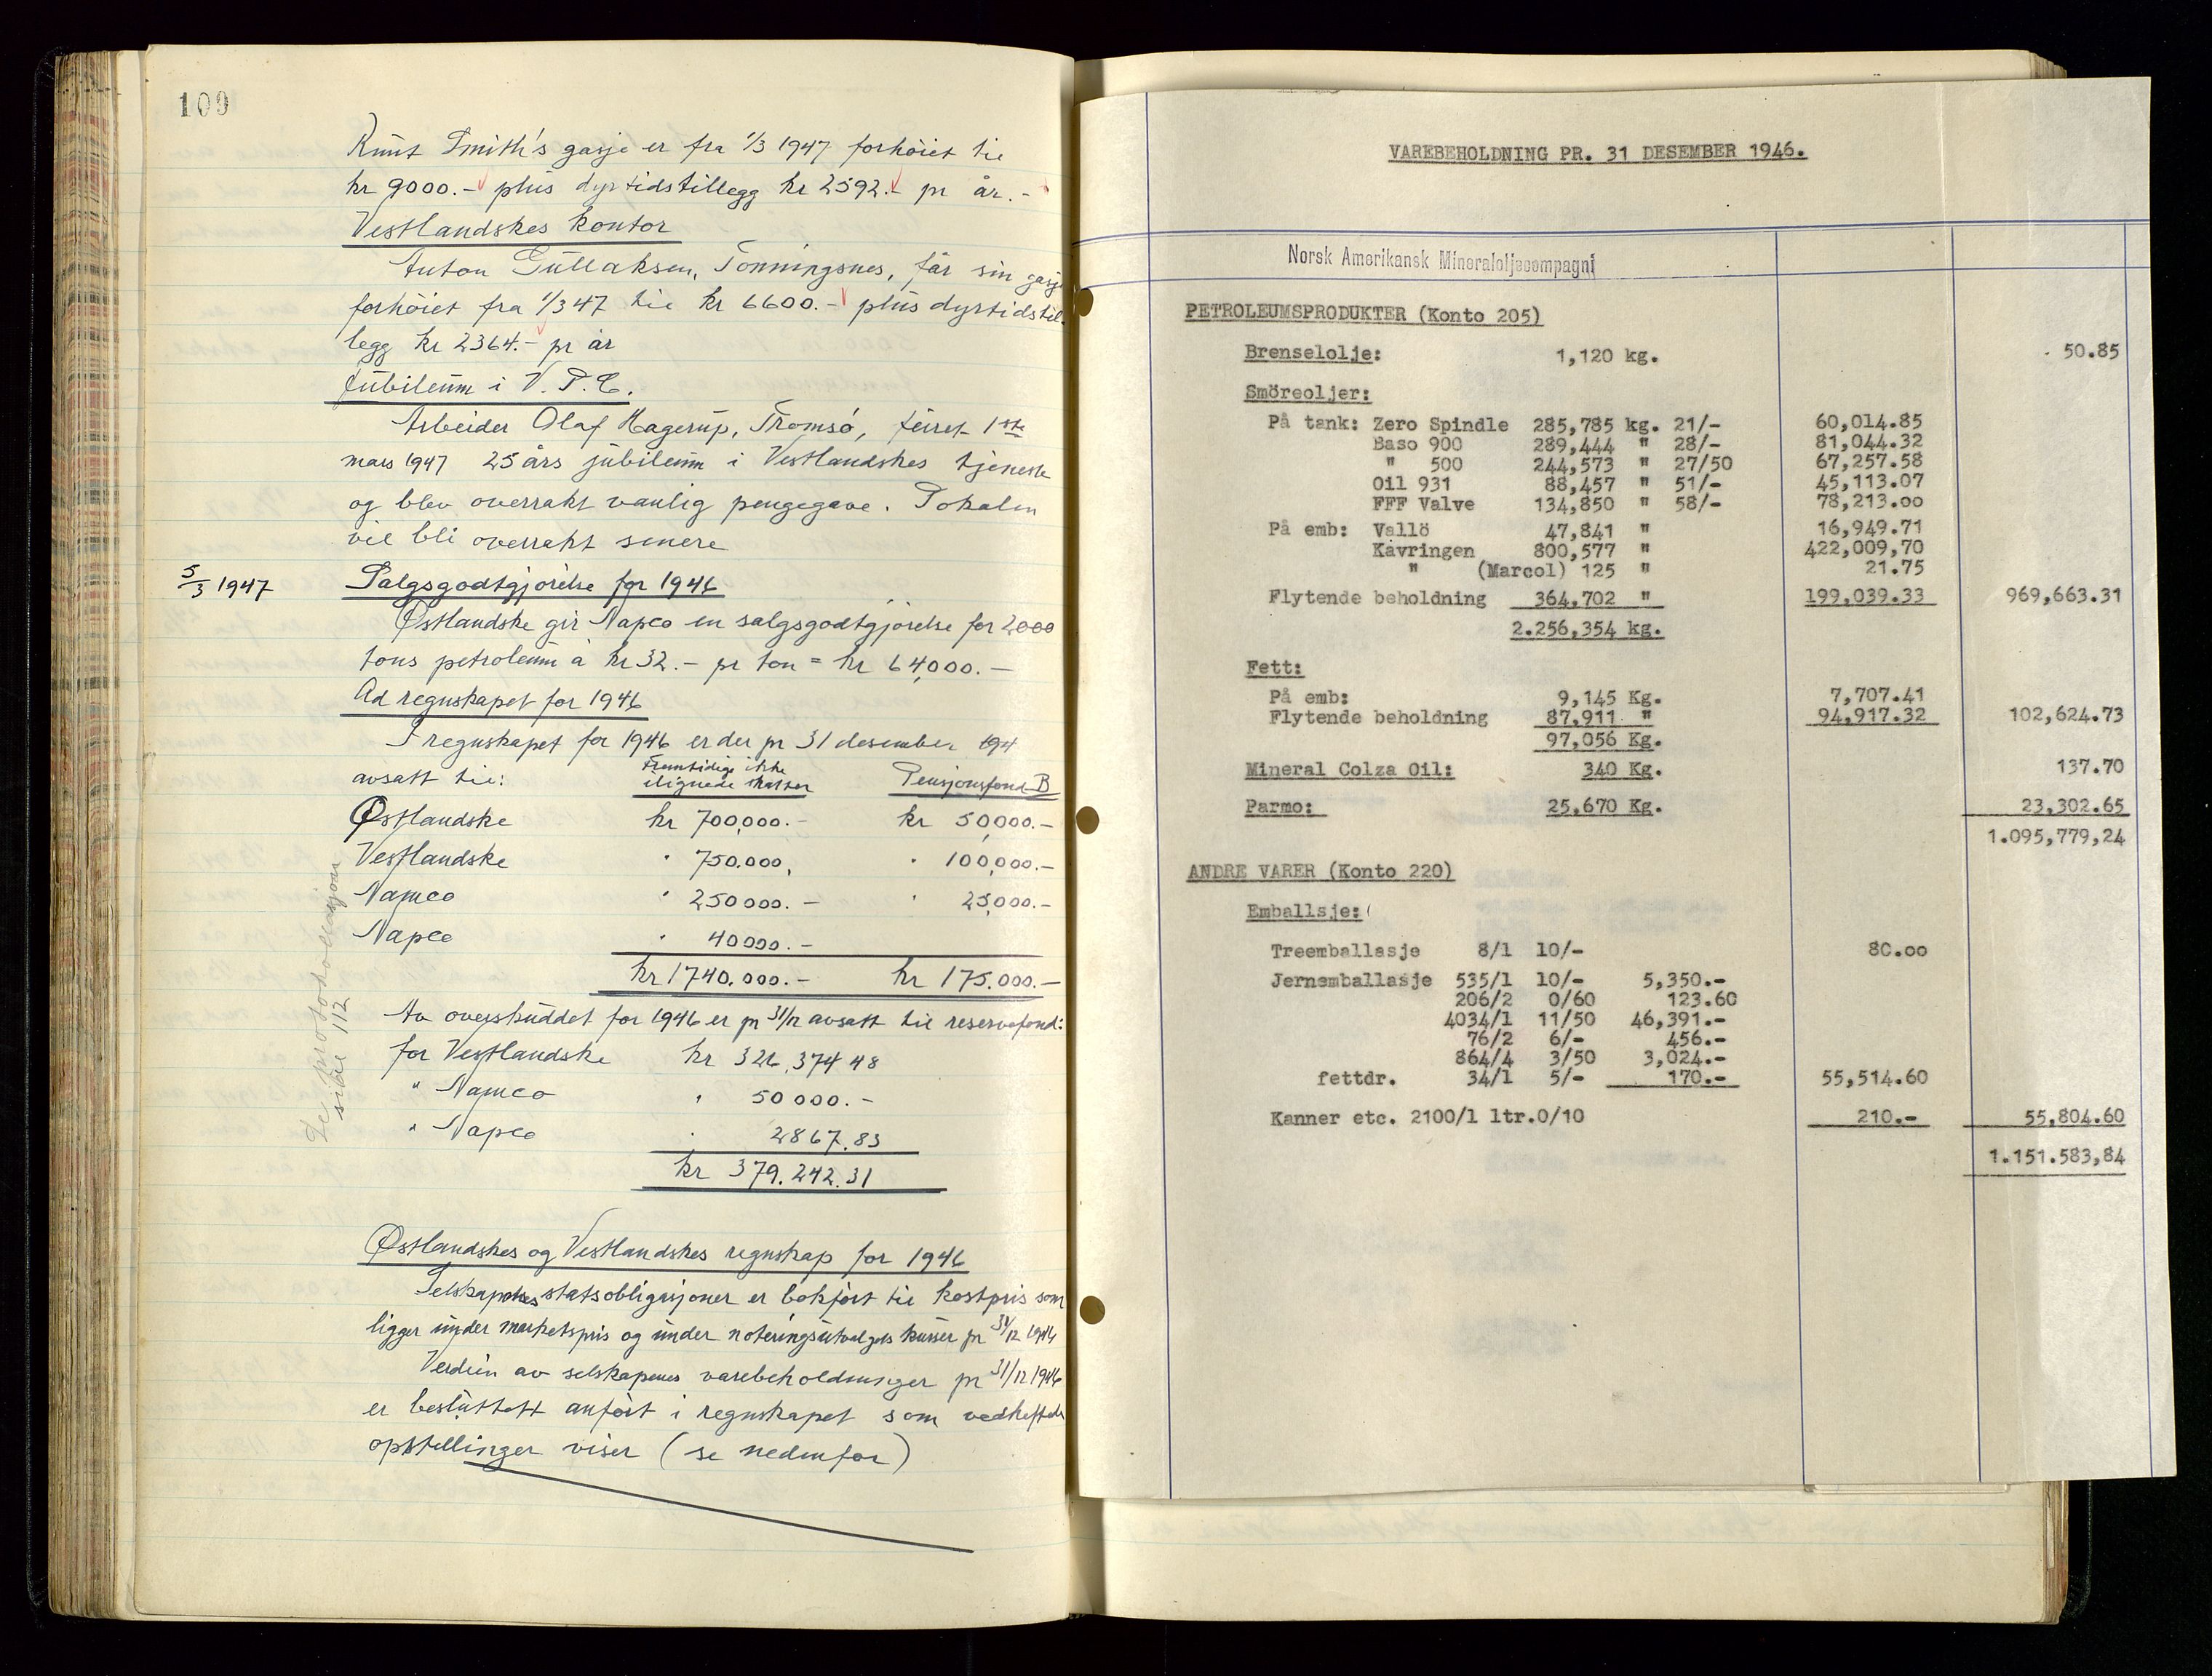 109
Knut Smith's gasje er fra 1/3 1947 forhöiet til
kr 9000.- plus dyrtidstillegg kr 2592.- pr år.-
Vestlandskes kontor
Anton Gullaksen, Tonningsnes, får sin gasje
forhöiet fra 1/3 47 til kr 6600.- plus dyrtidstil-
legg kr 2364.- pr år
Jubileum i V.P.C.
Arbeider Olaf Hagerup, Tromsö, feiret 1ste
mars 1947 25 års jubileum i Vestlandskes tjeneste
og blev overrakt vanlig pengegave. Pokalen
vil bli overrakt senere
5/3 1947 Salgsgodtgjörelse for 1946
Østlandske gir Napco en salgsgodtgjörelse for 2000
tons petroleum à kr 32.- pr ton = kr 64,000.-
Ad regnskapet for 1946
I regnskapet for 1946 er der pr 31 desember 194
avsatt til: Fremtidige ikke
utlignede skatter Pensjonsfond B
Østlandske kr 700,000.- kr 50,000.-
Vestlandske " 750.000, " 100,000.-
Namco " 250000.- " 25,000.-
Napco " 40000.-
kr 1740.000.- kr 175.000.-
Av overskuddet for 1946 er pr 31/12 avsatt til reservefond:
for Vestlandske kr 326,374 48
" Namco " 50000.-
" Napco " 2867.83
kr 379.242.31
Se protokollasjon
side 112
Østlandskes og Vestlandskes regnskap for 1946
Selskapenes statsobligasjoner er bokfört til kostpris som
ligger under markedspris og under noteringsutvalgets kurser pr 31/12 1946
Verdien av selskapenes varebeholdninger pr 31/12 1946
er besluttett anfört i regnskapet som vedheftede
opstillinger viser (se nedenfor)
VAREBEHOLDNING PR. 31 DESEMBER 1946.
Norsk Amerikansk Mineraloljecompagni
PETROLEUMSPRODUKTER (Konto 205)
Brenselolje: 1,120 kg. 50.85
Smöreoljer:
På tank: Zero Spindle 285,785 kg. 21/- 60,014.85
Baso 900 289,444 " 28/- 81,044.32
" 500 244,573 " 27/50 67,257.58
Oil 931 88,457 " 51/- 45,113.07
FFF Valve 134,850 " 58/- 78,213.00
På emb: Vallö 47,841 " 16,949.71
Kavringen 800,577 " 422,009,70
" (Marcol) 125 " 21.75
Flytende beholdning 364,702 " 199,039.33 969,663.31
2.256,354 kg.
Fett:
På emb: 9,145 Kg. 7,707.41
Flytende beholdning 87,911 " 94,917.32 102,624.73
97,056 Kg.
Mineral Colza Oil: 340 Kg. 137.70
Parmo: 25,670 Kg. 23,302.65
1.095,779,24
ANDRE VARER (Konto 220)
Emballsje:
Treemballasje 8/1 10/- 80.00
Jernemballasje 535/1 10/- 5,350.-
206/2 0/60 123.60
4034/1 11/50 46,391.-
76/2 6/- 456.-
864/4 3/50 3,024.-
fettdr. 34/1 5/- 170.- 55,514.60
Kanner etc. 2100/1 ltr.0/10 210.- 55,804.60
1.151.583,84